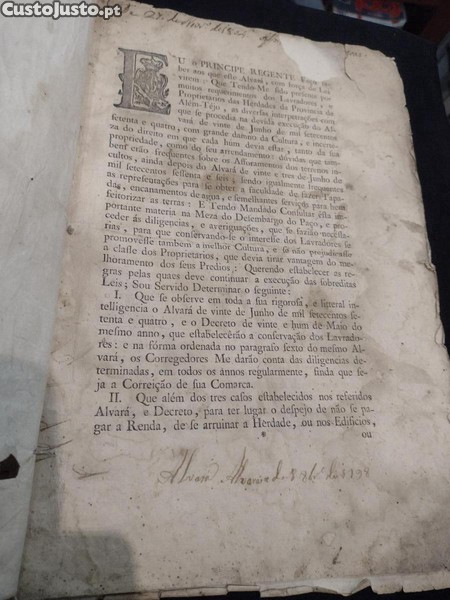 CustoJusto.pt
U o PRINCIPE REGENTE Faço sa-
ber aos que este Alvará com força de Lei
virem: Que Tendo-Me sido presente por
muitos requerimentos dos Lavradores, e
Proprietarios das Herdades da Provincia do
Além-Téjo, as diversas interpretações com
que se procedia na devida execução do Al-
vará de vinte de Junho de mil setecentos
setenta e quatro, com grande damno da Cultura, e incerte-
za do direito em que cada hum devia estar, tanto da sua
propriedade, como do seu arrendamento: dúvidas que tam-
bem erão frequentes sobre os Aforamentos dos terrenos in-
cultos, ainda depois do Alvará de vinte e tres de Junho de
mil setecentos sessenta e seis; sendo igualmente frequentes
as representações para se obter a faculdade de fazer Tapa-
das, encanamentos de agua, e semelhantes serviços para bem-
feitorizar as terras: E Tendo Mandado Consultar esta im-
portante materia na Meza do Desembargo do Paço, e pro-
ceder ás diligencias, e averiguações, que se farião necessa-
rias, para que conservando-se o interesse dos Lavradores se
promovesse tambem a melhor Cultura, e se não prejudicasse
a classe dos Proprietarios, que devia tirar vantagem do me-
lhoramento dos seus Predios: Querendo estabelecer as re-
gras pelas quaes deve continuar a execução das sobreditas
Leis; Sou Servido Determinar o seguinte:
I. Que se observe em toda a sua rigorosa, e litteral in-
telligencia o Alvará de vinte de Junho de mil setecentos se-
tenta e quatro, e o Decreto de vinte e hum de Maio do
mesmo anno, que estabelecêrão a conservação dos Lavrado-
res: e na fórma ordenada no paragrafo sexto do mesmo Al-
vará, os Corregedores Me darão conta das diligencias de-
terminadas, em todos os annos regularmente, finda que se-
ja a Correição de sua Comarca.
II. Que além dos tres casos estabelecidos nos referidos
Alvará, e Decreto, para ter lugar o despejo de não se pa-
gar a Renda, de se arruinar a Herdade, ou nos Edificios,
ou